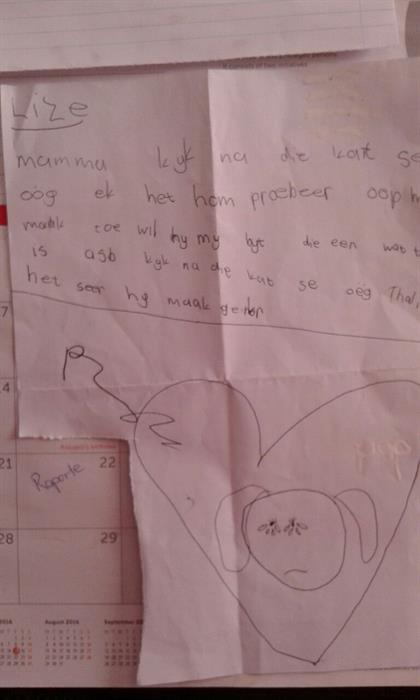 Lize
mamma kyk na die kat se
oög ek het hom proebeer oop m
maak toe wil hy my byt die een wat t
is asb kyk na die kat se oëg
het seer hy maak
7
14
21 Raporte 22
28 29
2016 August 2016 September